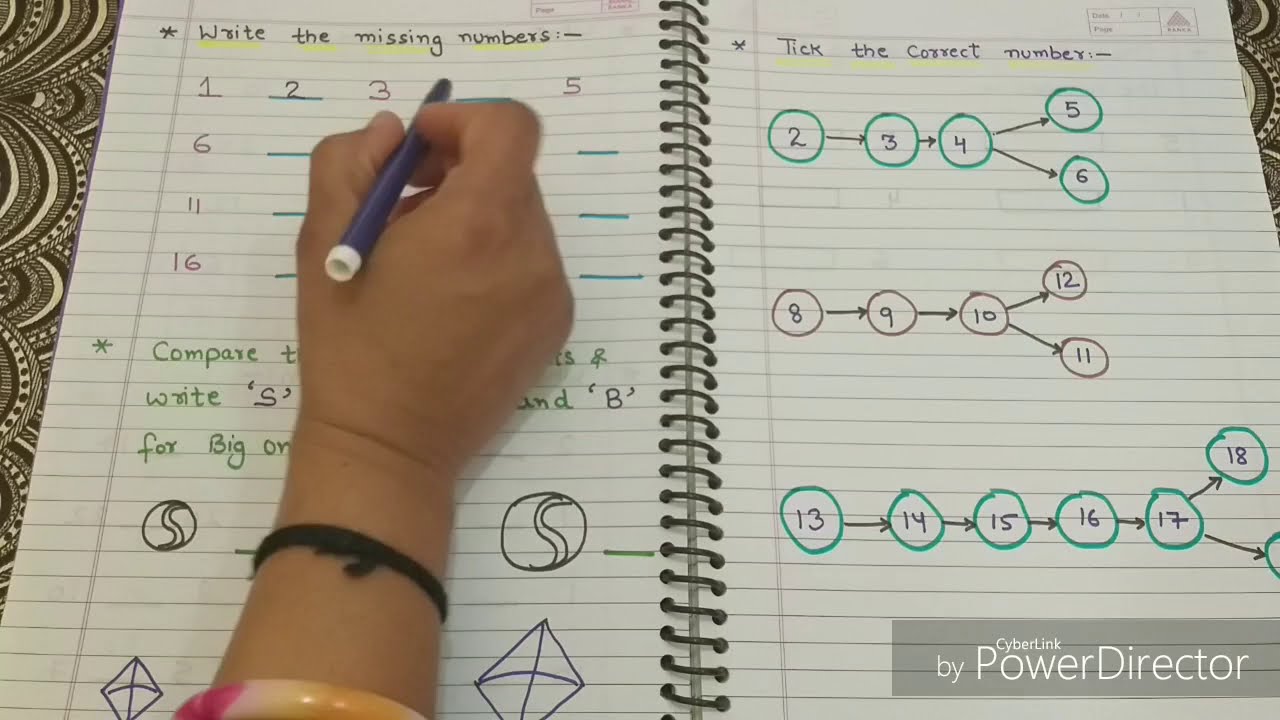 Page
* Write the missing numbers:-
1 2 3 5
6
11
16
* Compare &
write 'S' and 'B'
for Big
Date / /
Page
* Tick the Correct number:-
2 3 4 5
6
8 9 10 12
11
13 14 15 16 17 18
CyberLink
by PowerDirector